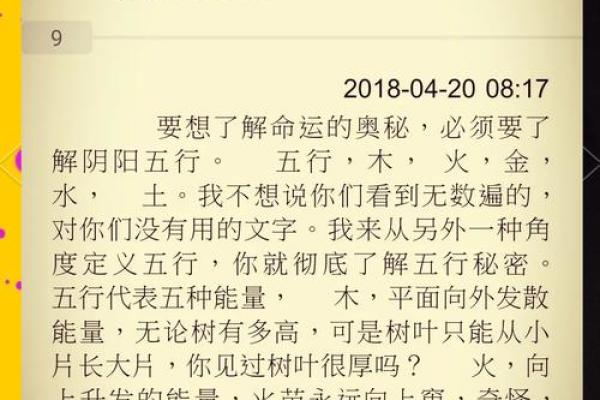 9
2018-04-20 08:17
要想了解命运的奥秘，必须要了
解阴阳五行。 五行，木， 火，金，
水， 土。我不想说你们看到无数遍的，
对你们没有用的文字。我来从另外一种角
度定义五行，你就彻底了解五行秘密。
五行代表五种能量， 木，平面向外发散
能量，无论树有多高，可是树叶只能从小
片长大片，你见过树叶很厚吗？ 火，向
上升发的能量，火苗永远向上窜，奇怪，